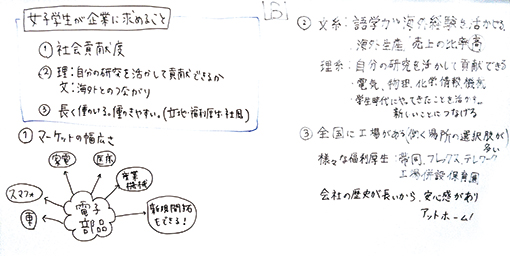 女子学生が企業に求めること
① 社会貢献度
② 理:自分の研究を活かして貢献できるか
文:海外とのつながり
③ 長く働いる。働きやすい。(立地・福利厚生・社風)
① マーケットの幅広さ
家電
医療
産業機械
スマフォ
車
電子部品
新規開拓をできる!
B
② 文系:語学力や海外経験を活かせる
海外生産、売上の比率高
理系:自分の研究を活かして貢献できる
・電気、物理、化学、情報、機械
・学生時代にやってきたことを活かす。
新しいことにつなげる
③ 全国に工場がある(働く場所の選択肢が多い
様々な福利厚生:帯同、フレックス、テレワーク
工場併設保育園
会社の歴史が長いから、安心感があり
アットホーム!